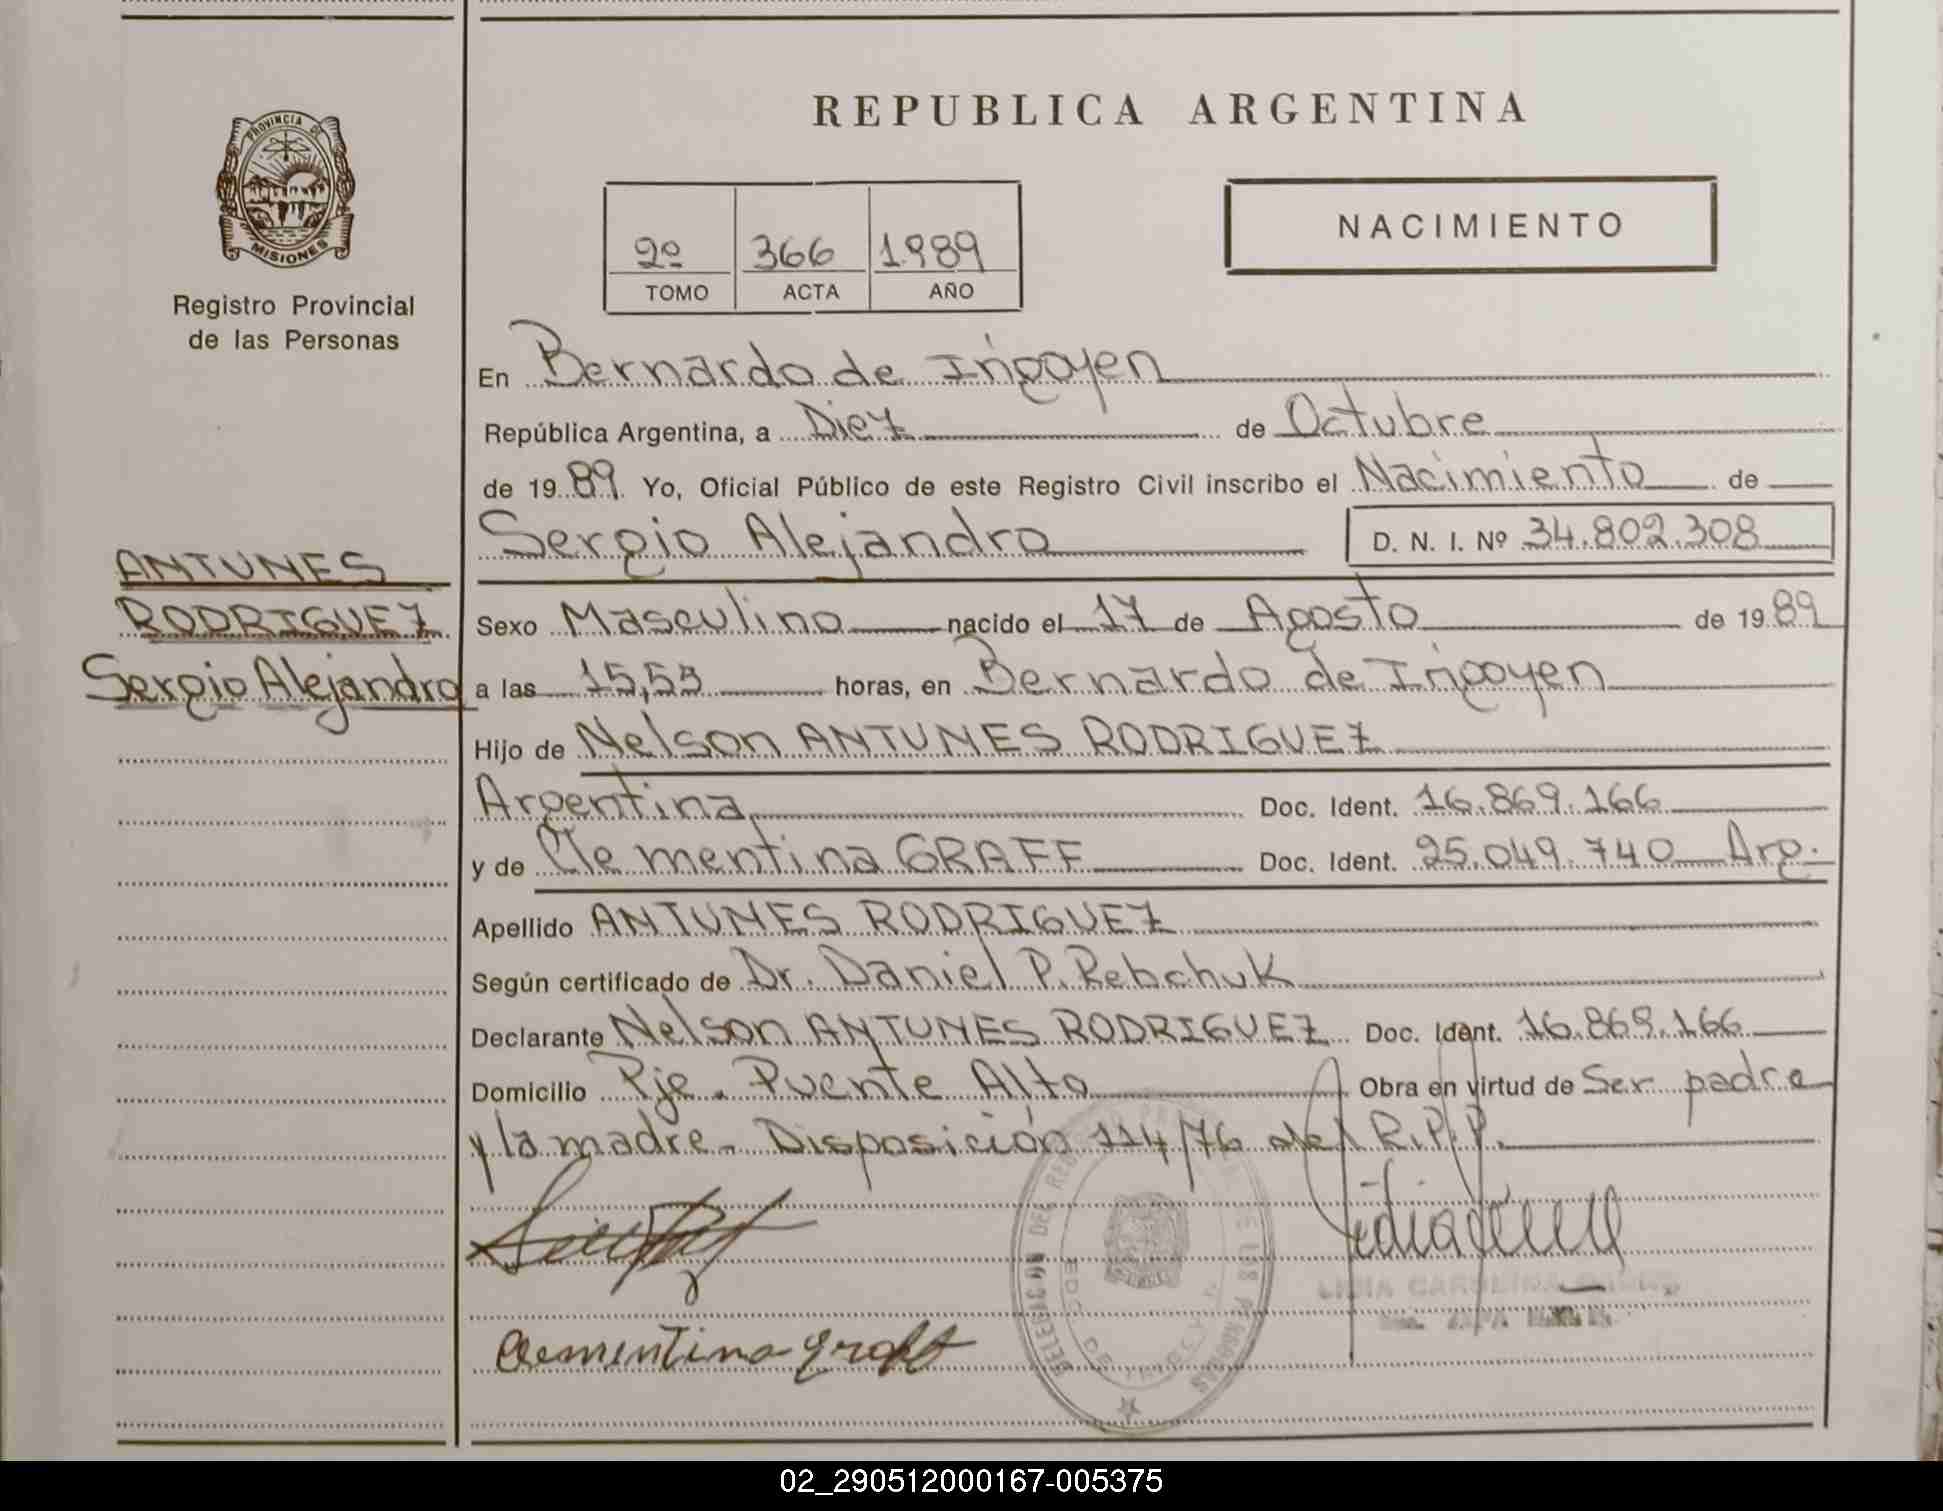 PROVINCIA DE
MISIONES
Registro Provincial
de las Personas
ANTUNES
RODRIGUEZ
Sergio Alejandro
REPUBLICA ARGENTINA
2º 366 1989
TOMO ACTA AÑO
NACIMIENTO
En Bernardo de Irigoyen
República Argentina, a Diez de Octubre
de 1989. Yo, Oficial Público de este Registro Civil inscribo el Nacimiento de
Sergio Alejandro D. N. I. Nº 34.802.308
Sexo Masculino nacido el 17 de Agosto de 1989
a las 15,55 horas, en Bernardo de Irigoyen
Hijo de Nelson ANTUNES RODRIGUEZ
Argentina Doc. Ident. 16.869.166
y de Clementina GRAFF Doc. Ident. 25.049.740 Arg.
Apellido ANTUNES RODRIGUEZ
Según certificado de Dr. Daniel P. Rebchuk
Declarante NElson ANTUNES RODRIGUEZ Doc. Ident. 16.869.166
Domicilio Pje. Puente Alto Obra en virtud de Ser padre
y la madre. Disposición 114/76 del R.P.P.
Clementina graff
LIDIA CAROLINA
02_290512000167-005375